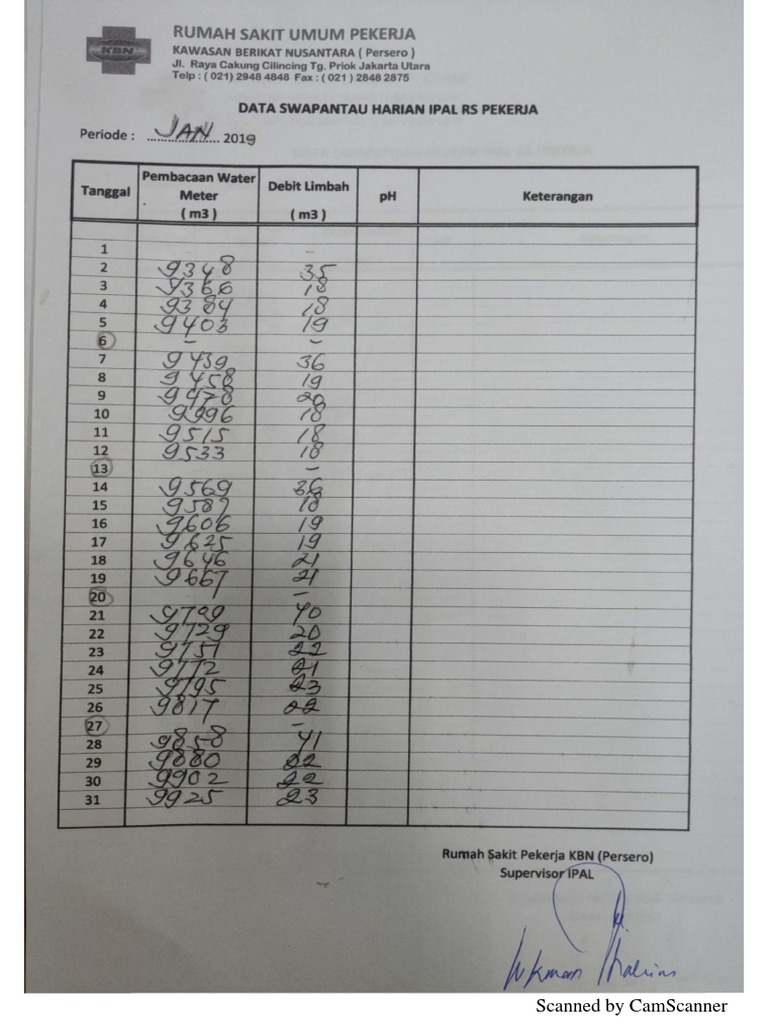 RUMAH SAKIT UMUM PEKERJA
KBN
KAWASAN BERIKAT NUSANTARA ( Persero )
Jl. Raya Cakung Cilincing Tg. Priok Jakarta Utara
Telp : ( 021) 2948 4848 Fax : ( 021 ) 2848 2875
DATA SWAPANTAU HARIAN IPAL RS PEKERJA
Periode : JAN 2019
Tanggal Pembacaan Water Meter ( m3 ) Debit Limbah ( m3 ) pH Keterangan
1 - -
2 9348 35
3 9366 18
4 9384 18
5 9403 19
6 - -
7 9439 36
8 9458 19
9 9478 20
10 9996 18
11 9515 18
12 9533 18
13 -
14 9569 36
15 9587 18
16 9606 19
17 9625 19
18 9646 21
19 9667 21
20 - -
21 9709 40
22 9729 20
23 9751 22
24 9772 21
25 9795 23
26 9817 22
27 -
28 9858 41
29 9880 22
30 9902 22
31 9925 23
Rumah Sakit Pekerja KBN (Persero)
Supervisor IPAL
Scanned by CamScanner